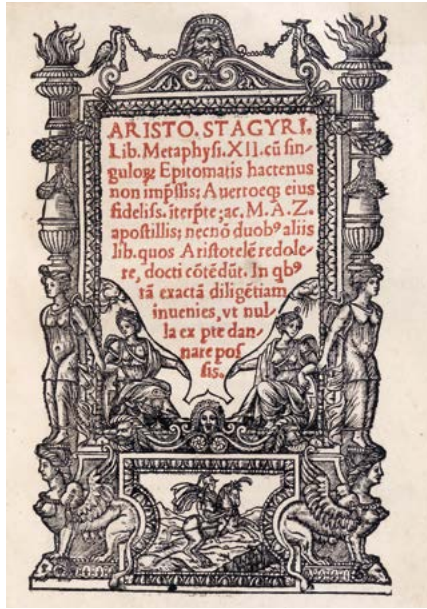 ARISTO. STAGYRI.
Lib. Metaphysi. XII. cũ sin-
guloꝝ Epitomatis hactenus
non imp̃ssis; Auerroeqꝫ eius
fideliss. ĩterp̃te; ac. M. A. Z.
apostillis; necnõ duobꝰ aliis
lib. quos Aristotelẽ redole-
re, docti cõtẽdũt. In qbꝰ
tã exactã diligẽtiam
inuenies, vt nul-
la ex pte dan-
nare pos
sis.